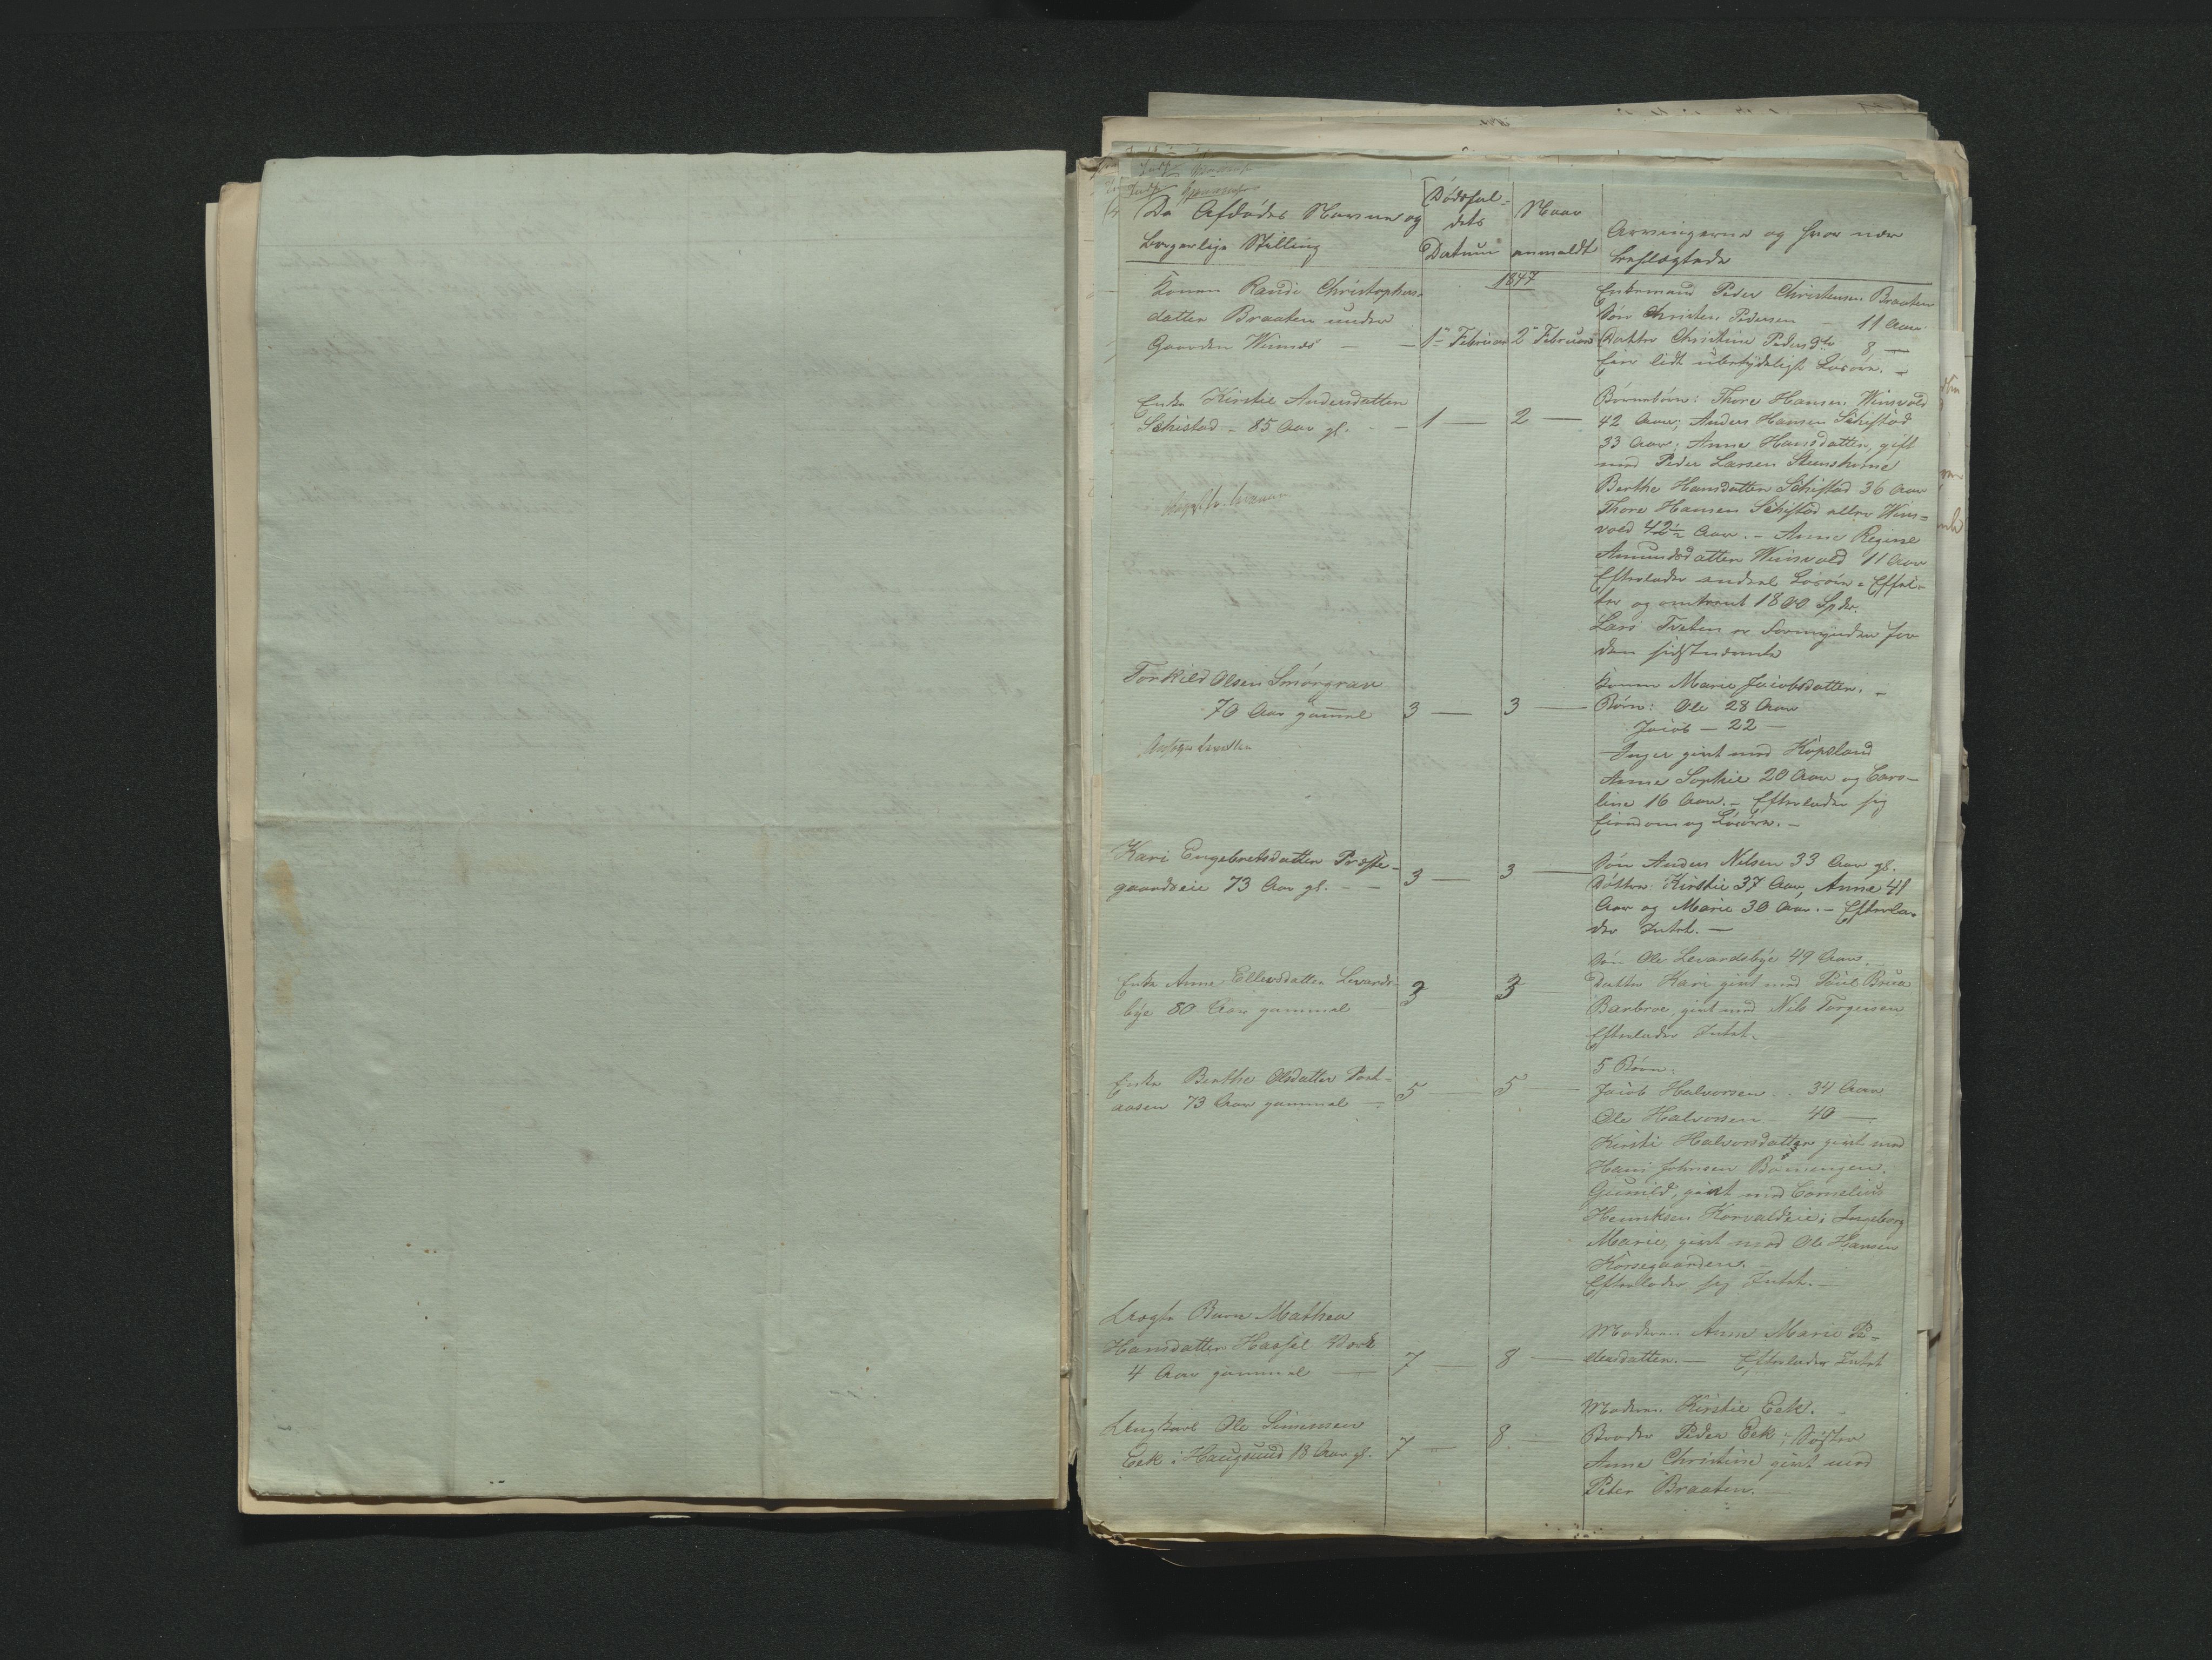 De Afdødes Navne og
borgerlige Stilling
Dødsfal-
dets
Datum
Naar
anmeldt
Arvingerne og hvor nær
beslægtede
1847
Konen Randi Christophers-
datter Braaten under
Gaarden Wemæs —
1ste Februar
2den Februar
Enkemand Peder Christensen Braaten
Søn Christen Pedersen — 11 Aar
Datter Christine Pedersdtr 8 —
Eier lidt ubetydeligt Løsøre. —
Enke Kirstie Andersdatter
Schistad - 85 Aar gl. —
1 —
2 —
Børnebørn: Thore Hansen Wimsvold
42 Aar; Anders Hansen Schistad
33 Aar; Anne Hansdatter, gift
med Peder Larsen Steenshorne
Berthe Hansdatter Schistad 36 Aar
Thore Hansen Schistad eller Wims-
vold 42½ Aar. — Anne Regine
Amundsdatter Wimsvold 11 Aar
Efterlader endeel Løsøre Effec-
ter og omtrent 1800 Spdr.
Lars Tveten er Formynder for
den sidstnævnte
Torkild Olsen Smørgrav
70 Aar gammel
3 —
3 —
Konen Marie Jacobsdatter. —
Børn: Ole 28 Aar
Jacob — 22 —
Inger givt med Kopsland
Anne Sophie 20 Aar og Caro-
line 16 Aar. — Efterlader sig
Eiendom og Løsøre. —
Kari Engebretsdatter Præste-
gaardseie 73 Aar gl. — —
3 —
3 —
Søn Anders Nilsen 33 Aar gl.
Døttre: Kirstie 37 Aar, Anne 41
Aar og Marie 30 Aar. — Efterla-
der Intet. —
Enke Anne Ellevsdatter Levards-
bye 80 Aar gammel
3
3
Søn Ole Levardsbye 49 Aar
Datter Kari givt med Poul Brua
Barbroe, givt med Nils Torgersen
Efterlader Intet.
Enke Berthe Olsdatter Port-
aasen 73 Aar gammel —
5 —
5 —
5 Børn:
Jacob Halvorsen .. 34 Aar
Ole Halvorsen 40 —
Kirsti Halvorsdatter givt med
Hans Johnsen Bamengen.
Gunild, givt med Cornelius
Henriksen Korvaldseie; Ingeborg
Marie, givt med Ole Hansen
Korsegaarden. —
Efterlader sig Intet. —
Uægte Barn Mathea
Hansdatter Hassel Værk
4 Aar gammel —
7 —
8 —
Moderen Anne Marie Pe-
dersdatter. — Efterlader Intet
Ungkarl Ole Simensen
Eek i Haugsund 18 Aar gl.
7 —
8 —
Moderen Kirstie Eek.
Broder Peder Eek; Søster
Anne Christine givt med
Peter Braaten.